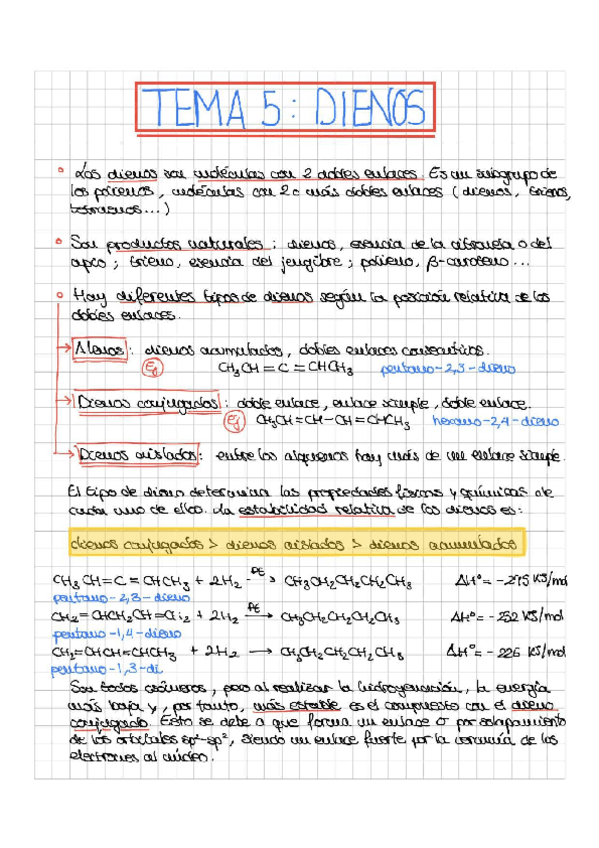 TEMA 5: DIENOS
Los dienos son moléculas con 2 dobles enlaces. Es un subgrupo de
los polienos, moléculas con 2 o más dobles enlaces (dienos, trienos,
tetraenos...)
Son productos naturales: dienos, esencia de la ciruela o del
apio; trieno, esencia del jengibre; polieno, β-caroteno...
Hay diferentes tipos de dienos según la posición relativa de los
dobles enlaces.
Alenos: dienos acumulados, dobles enlaces consecutivos.
Ej CH3CH=C=CHCH3 pentano-2,3-dieno
Dienos conjugados: doble enlace, enlace simple, doble enlace.
Ej CH3CH=CH-CH=CHCH3 hexano-2,4-dieno
Dienos aislados: entre los alquenos hay más de un enlace simple.
El tipo de dieno determina las propiedades físicas y químicas de
cada uno de ellos. La estabilidad relativa de los dienos es:
dienos conjugados > dienos aislados > dienos acumulados
CH3CH=C=CHCH3 + 2H2 Pt→ CH3CH2CH2CH2CH3 ΔHº=-295 KJ/mol
pentano-2,3-dieno
CH2=CHCH2CH=CH2 + 2H2 Pt→ CH3CH2CH2CH2CH3 ΔHº=-252 KJ/mol
pentano-1,4-dieno
CH2=CHCH=CHCH3 + 2H2 → CH3CH2CH2CH2CH3 ΔHº=-226 KJ/mol
pentano-1,3-di
Son todos isómeros, pero al realizar la hidrogenación, la energía
más baja y, por tanto, más estable es el compuesto con el dieno
conjugado. Esto se debe a que forma un enlace σ por solapamiento
de los orbitales sp²-sp², siendo un enlace fuerte por la cercanía de los
electrones al núcleo.